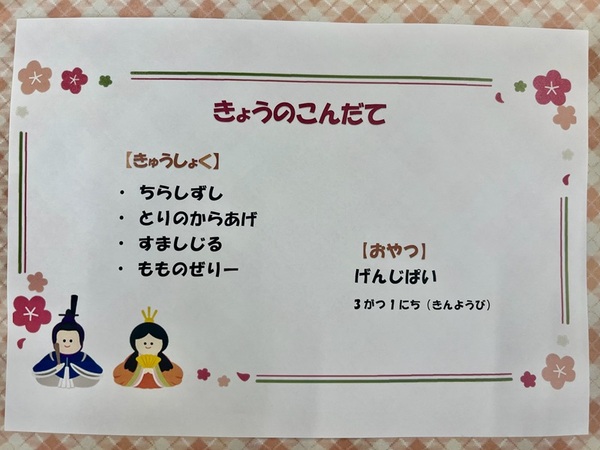 きょうのこんだて
【きゅうしょく】
・ ちらしずし
・ とりのからあげ
・ すましじる
・ もものぜりー
【おやつ】
げんじぱい
3がつ1にち（きんようび）